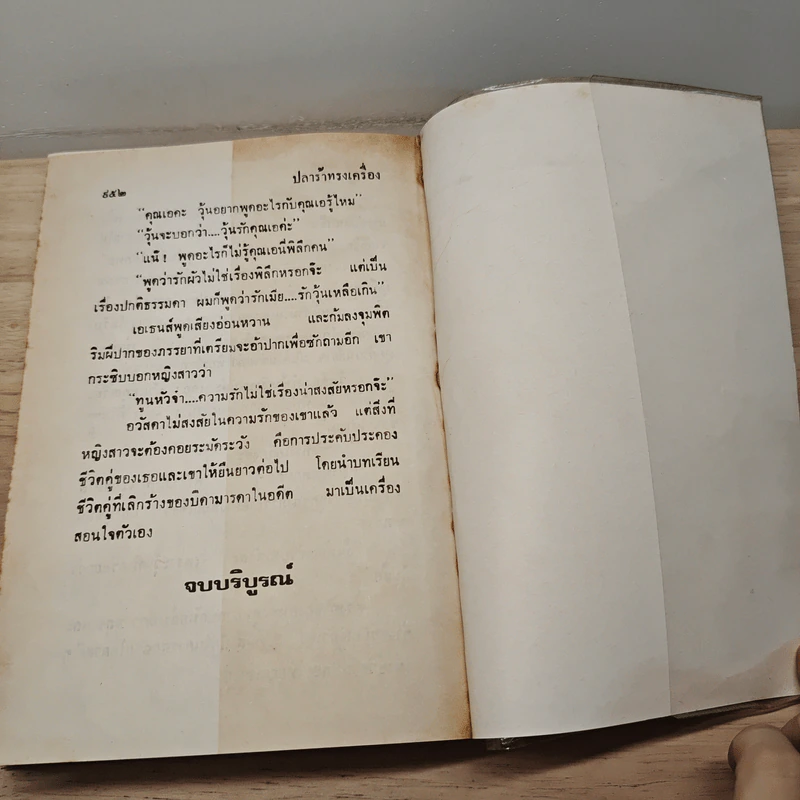 ๕๕๒ ปลาร้าทรงเครื่อง
“คุณเอคะ วุ้นอยากพูดอะไรกับคุณเอรู้ไหม”
“วุ้นจะบอกว่า....วุ้นรักคุณเอค่ะ”
“แน้! พูดอะไรก็ไม่รู้คุณเอนี่พิลึกคน”
“พูดว่ารักผัวไม่ใช่เรื่องพิลึกหรอกจ๊ะ แต่เป็น
เรื่องปกติธรรมดา ผมก็พูดว่ารักเมีย....รักวุ้นเหลือเกิน”
เอเธนส์พูดเสียงอ่อนหวาน และก้มลงจุมพิต
ริมฝีปากของภรรยาที่เตรียมจะอ้าปากเพื่อซักถามอีก เขา
กระซิบบอกหญิงสาวว่า
“ทูนหัวจ๋า....ความรักไม่ใช่เรื่องน่าสงสัยหรอกจ๊ะ”
อวัสดาไม่สงสัยในความรักของเขาแล้ว แต่สิ่งที่
หญิงสาวจะต้องคอยระมัดระวัง คือการประคับประคอง
ชีวิตคู่ของเธอและเขาให้ยืนยาวต่อไป โดยนำบทเรียน
ชีวิตคู่ที่เลิกร้างของบิดามารดาในอดีต มาเป็นเครื่อง
สอนใจตัวเอง
จบบริบูรณ์